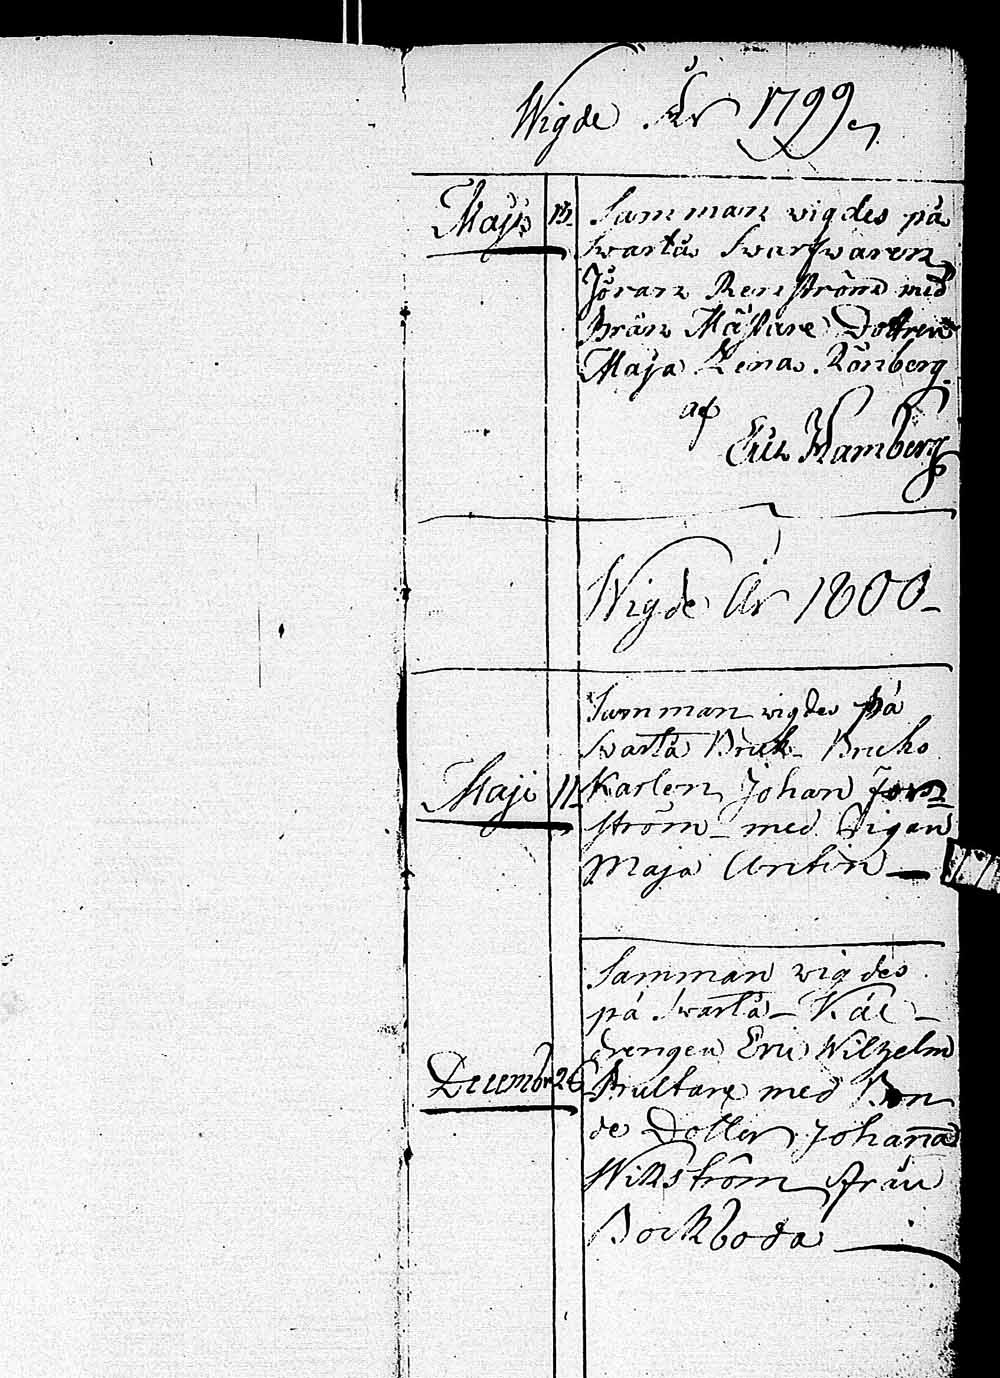 Wigde År 1799
Maji Samman wigdes på
Swartå Swarfwaren
Jöran Renström med
Mästare Dottren
Maja Lena Rönberg
af
Eric Hamberg
Wigde År 1800
Samman wigdes på
Swartå Bruk Bruks
Maji 11 Karlen Johan Fors
ström med Pigan
Maja Antin
Samman wigdes
på Swartå
drengen Eric Wilhelm
Decembr 26 med Bon
de Dotter Johanna
Wikström från
Bockboda